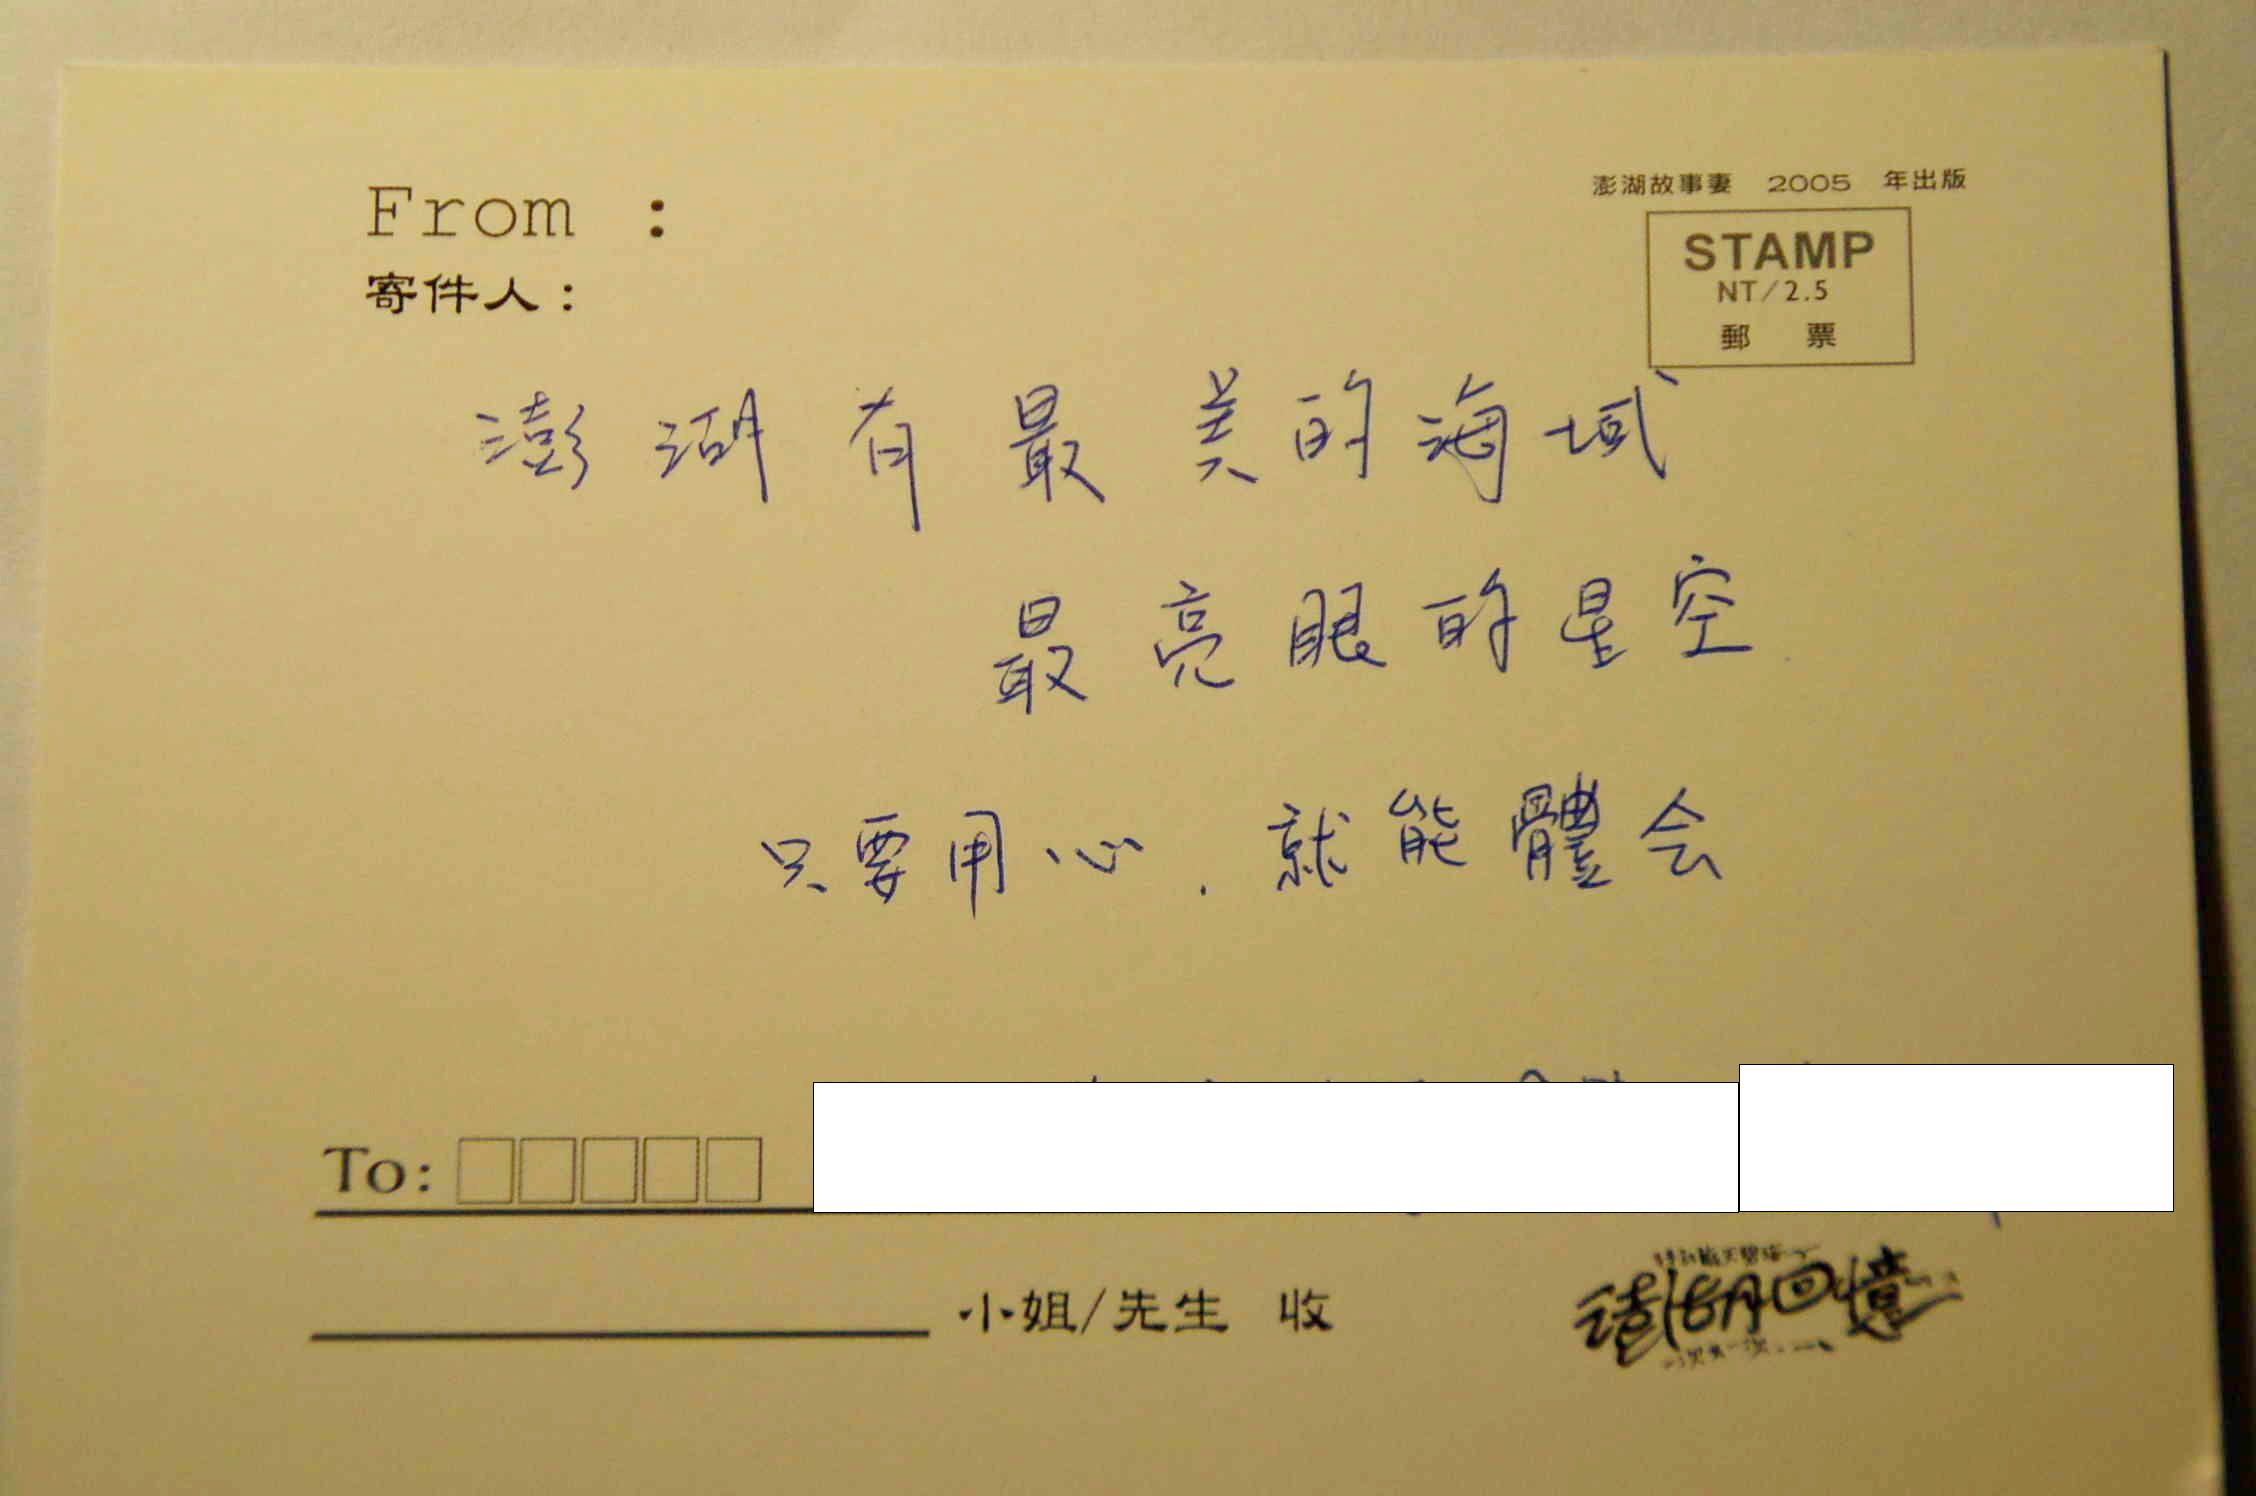 From :
寄件人:
澎湖故事妻 2005 年出版
STAMP
NT/2.5
郵 票
澎湖有最美的海域
最亮眼的星空
只要用心.就能體会
To:
小姐/先生 收
澎湖回憶